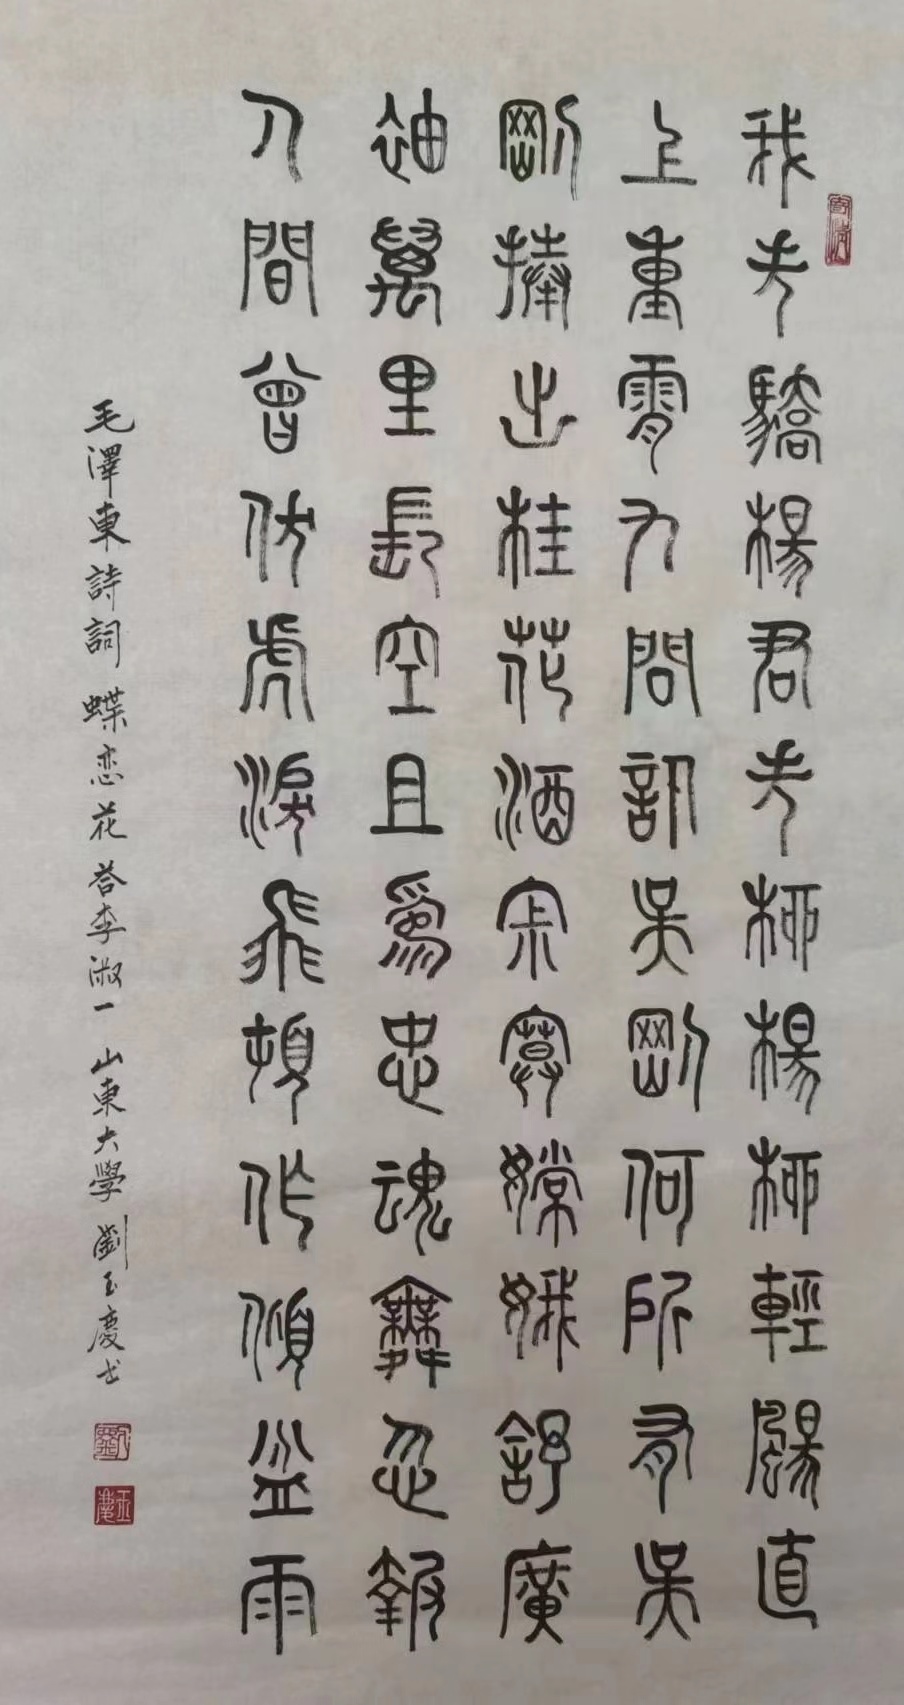 我失驕楊君失柳楊柳輕颺直
上重霄九問訊吳剛何所有吳
剛捧出桂花酒寂寞嫦娥舒廣
袖萬里長空且為忠魂舞忽報
人間曾伏虎淚飛頓作傾盆雨
毛澤東詩詞 蝶恋花 荅李淑一 山東大學 劉玉慶书